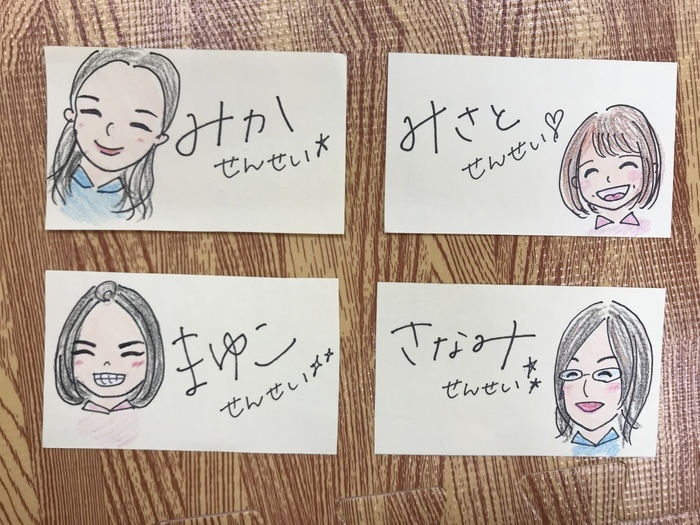 みか
せんせい☆
みさと
せんせい♡
まゆこ
せんせい☆☆
さなみ
せんせい☆☆